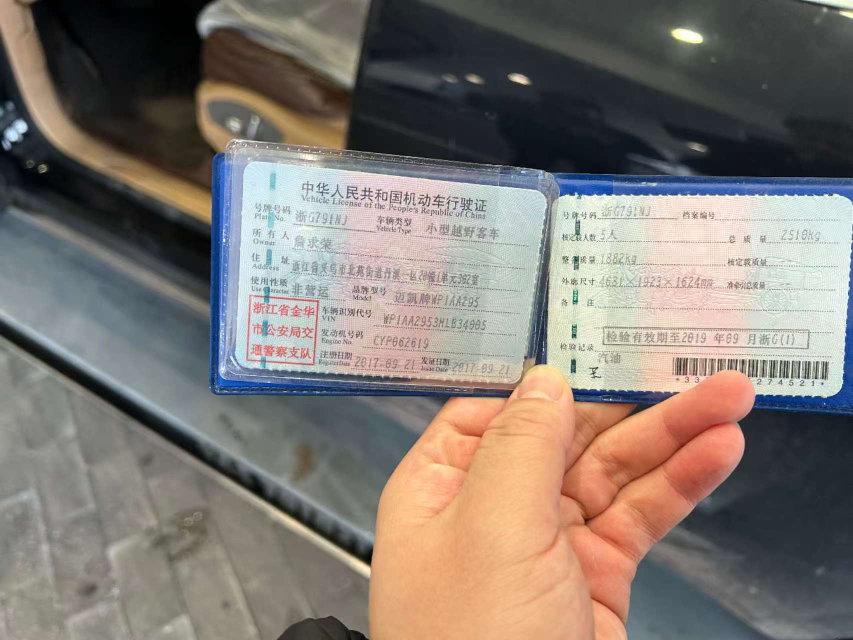 中华人民共和国机动车行驶证
Vehicle License of the People's Republic of China
号牌号码 浙G791NJ 车辆类型 小型越野客车
Plate No. Vehicle Type
所有人
Owner
住址 浙江省义乌市北苑街道丹溪一区20幢1单元302室
Address
使用性质 非营运 品牌型号 迈凯牌WP1AA295
Use Character Model
浙江省金华
市公安局交
通警察支队
车辆识别代号 WP1AA2953HLB34005
VIN
发动机号码 CYP062619
Engine No.
注册日期 2017-09-21 发证日期 2017-09-21
Register Date Issue Date
号牌号码 浙G791NJ 档案编号
核定载人数 5人 总质量 2510kg
整备质量 1882kg 核定载质量
外廓尺寸 4681×1923×1624mm 准牵引总质量
备注
检验有效期至2019年09月浙G(1)
检验记录
汽油